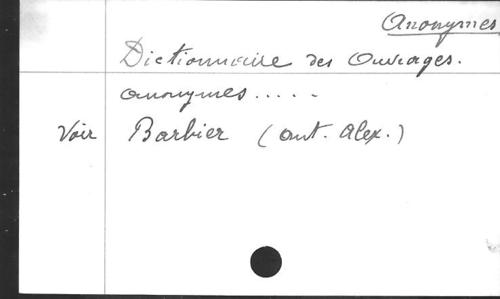 Anonymes
Dictionnaire des Ouvrages.
anonymes.....
Voir Barbier (ant. Alex.)